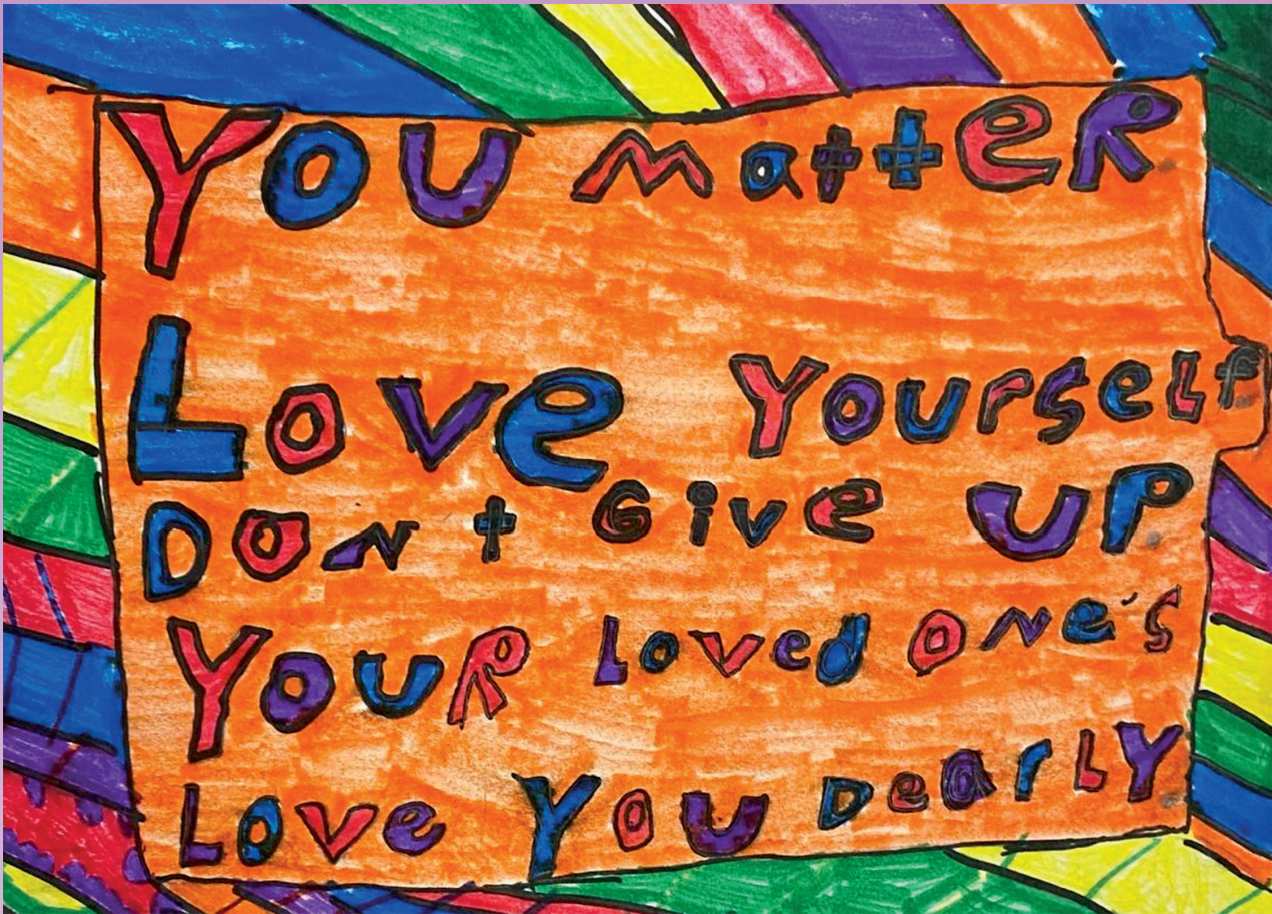 YOU MatteR
Love YourseLf
DoN t GivE UP
YOUR Loved oNe's
Love You DearLY